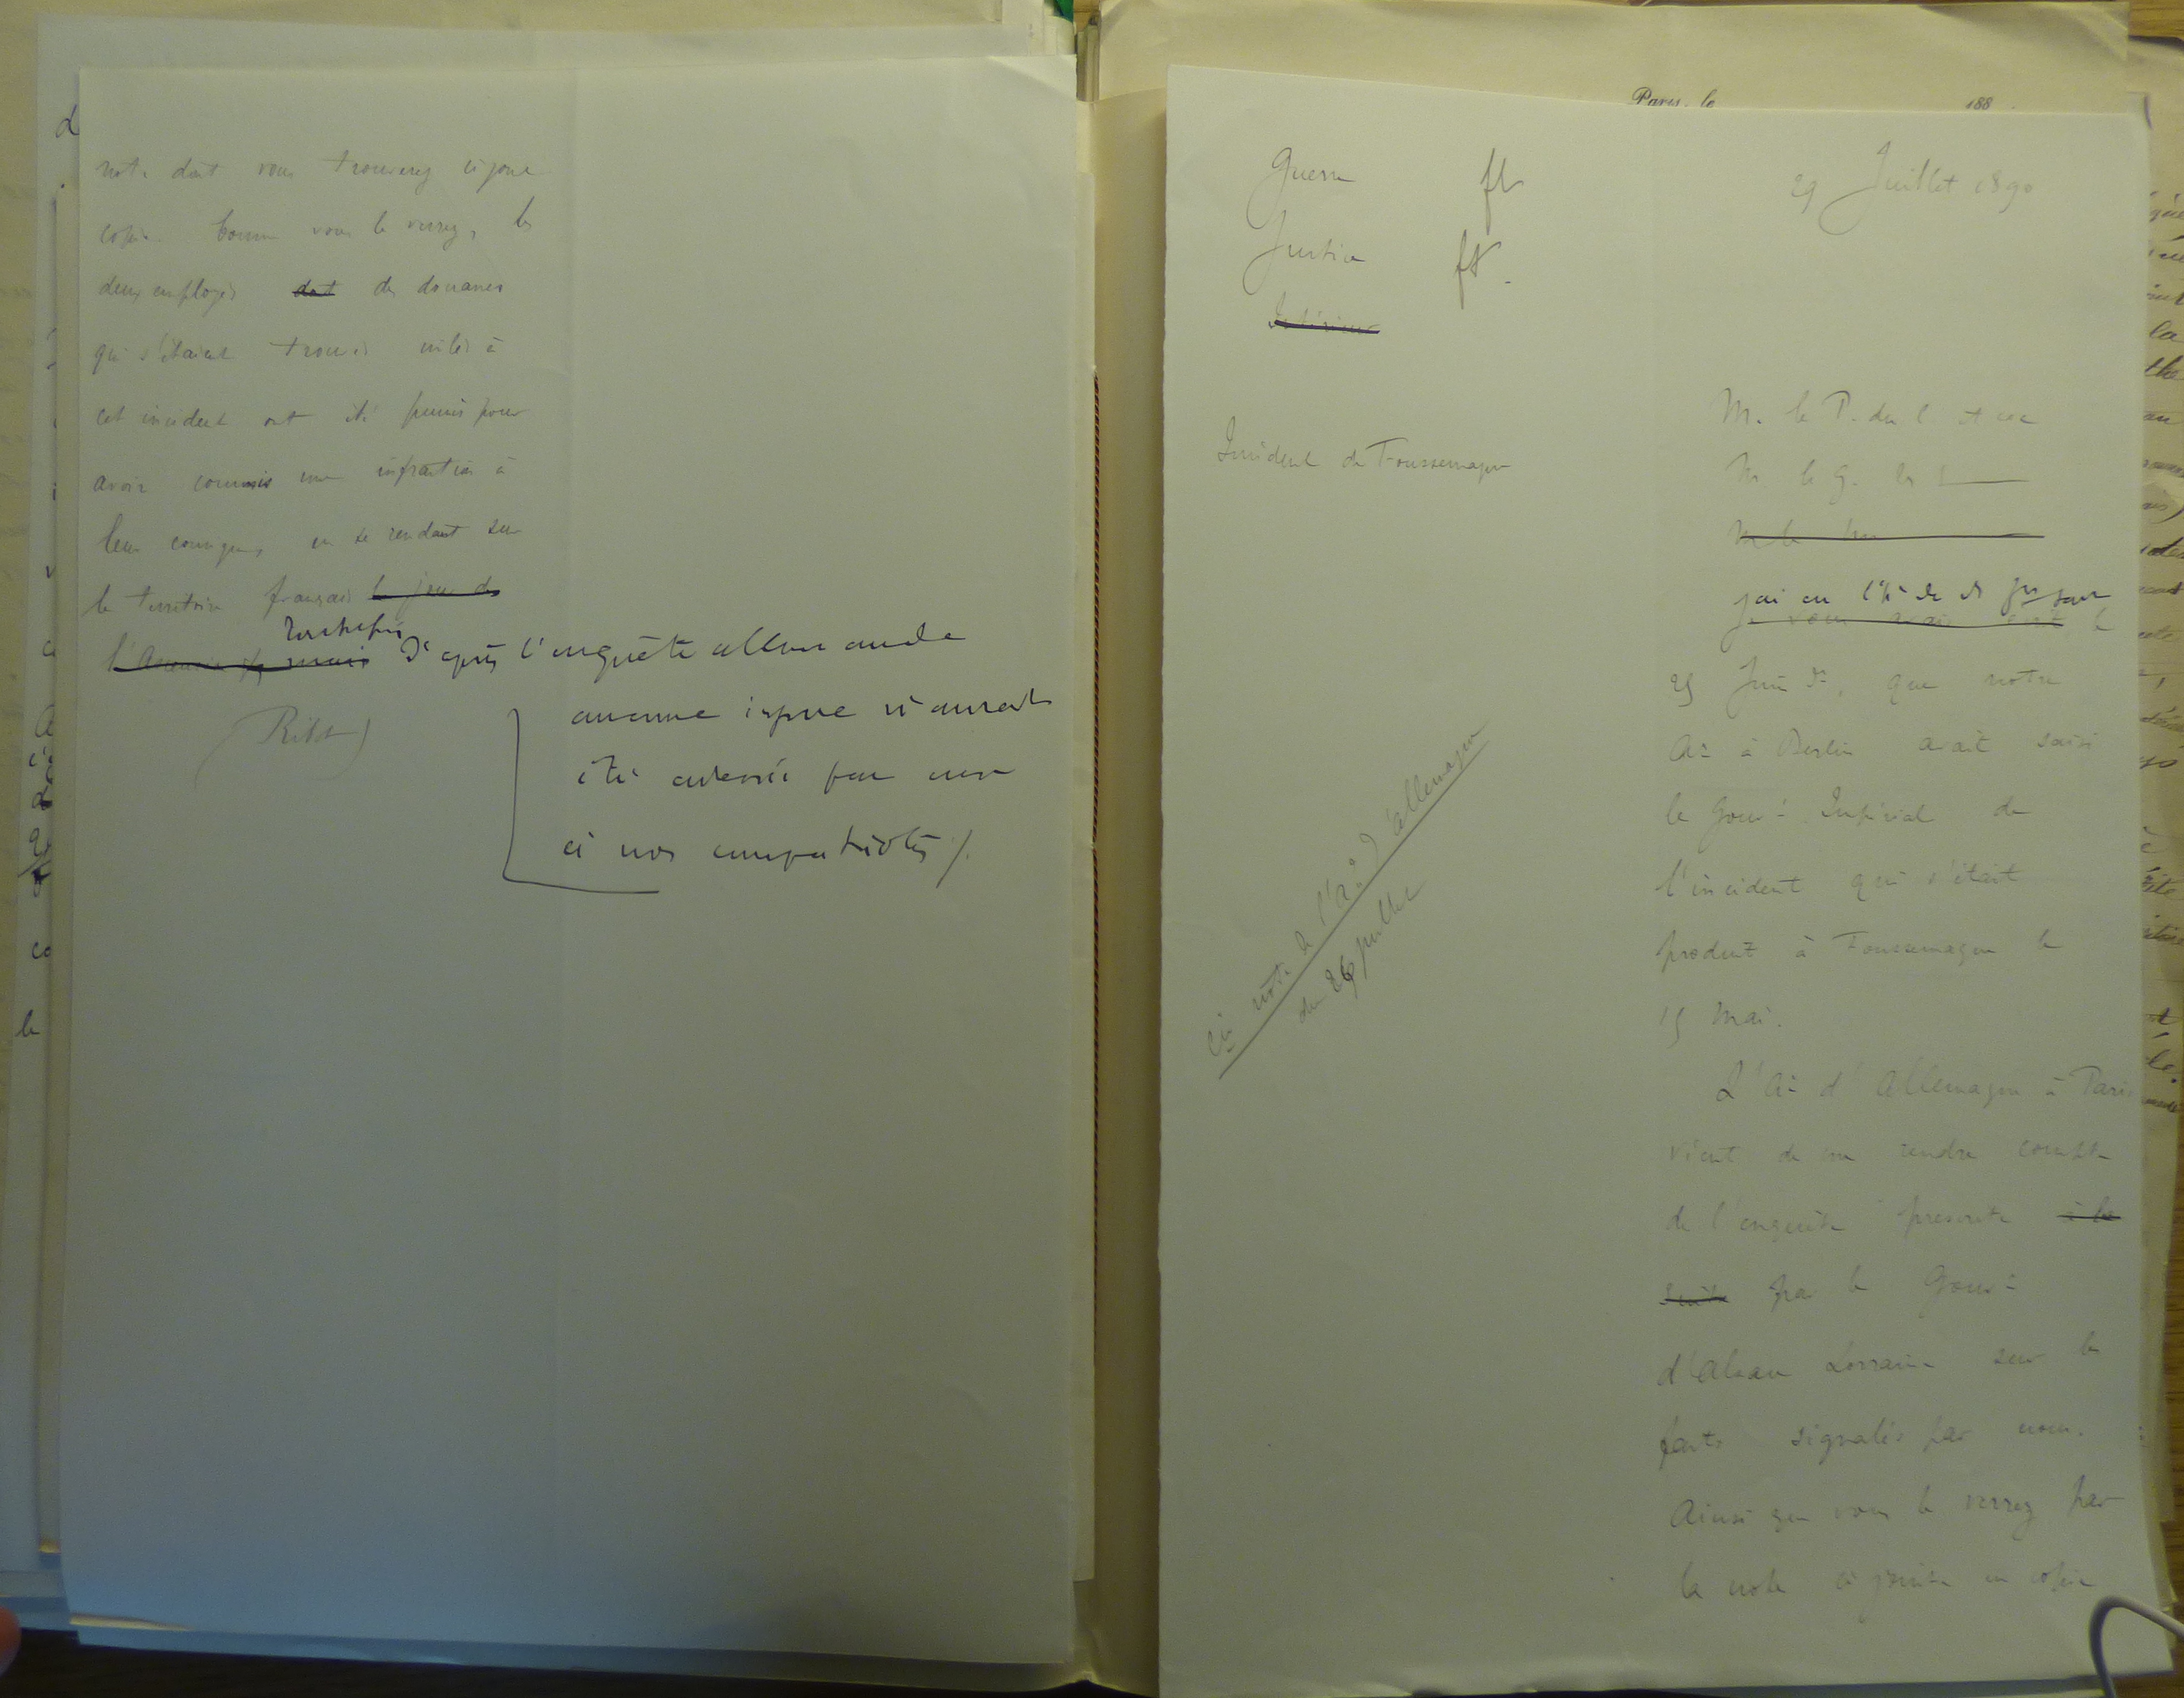 note dont vous trouverez ci joint
copie. Comme vous le verrez, les
deux employés dont des douanes
qui s'étaient trouvés mêlés à
cet incident ont été punis pour
avoir commis une infraction à
leur consigne, en se rendant sur
le territoire français le jour de
l'Ascension mais D'après l'enquête allemande
aucune injure n'aurait
été adressée par eux
à nos compatriotes /.
(Ribot)
Paris, le 188 .
Guerre ft
Justice ft.
Intérieur
29 Juillet 1890
Incident de Foussemagne
M. le P. du C
M. le G. des S
M. le
j'ai eu l'hr de
je vous avais écrit le
25 Juin dr, que notre
Ar à Berlin avait saisi
le Gouvt Impérial de
l'incident qui s'était
produit à Foussemagne le
15 Mai.
L'Ar d'Allemagne à Paris
vient de me rendre compte
de l'enquête prescrite à la
suite par le Gouvt
d'Alsace Lorraine sur les
faits signalés par nous.
Ainsi que vous le verrez par
la note ci jointe en copie
note de l'Ar d'Allemagne
du 26 juillet